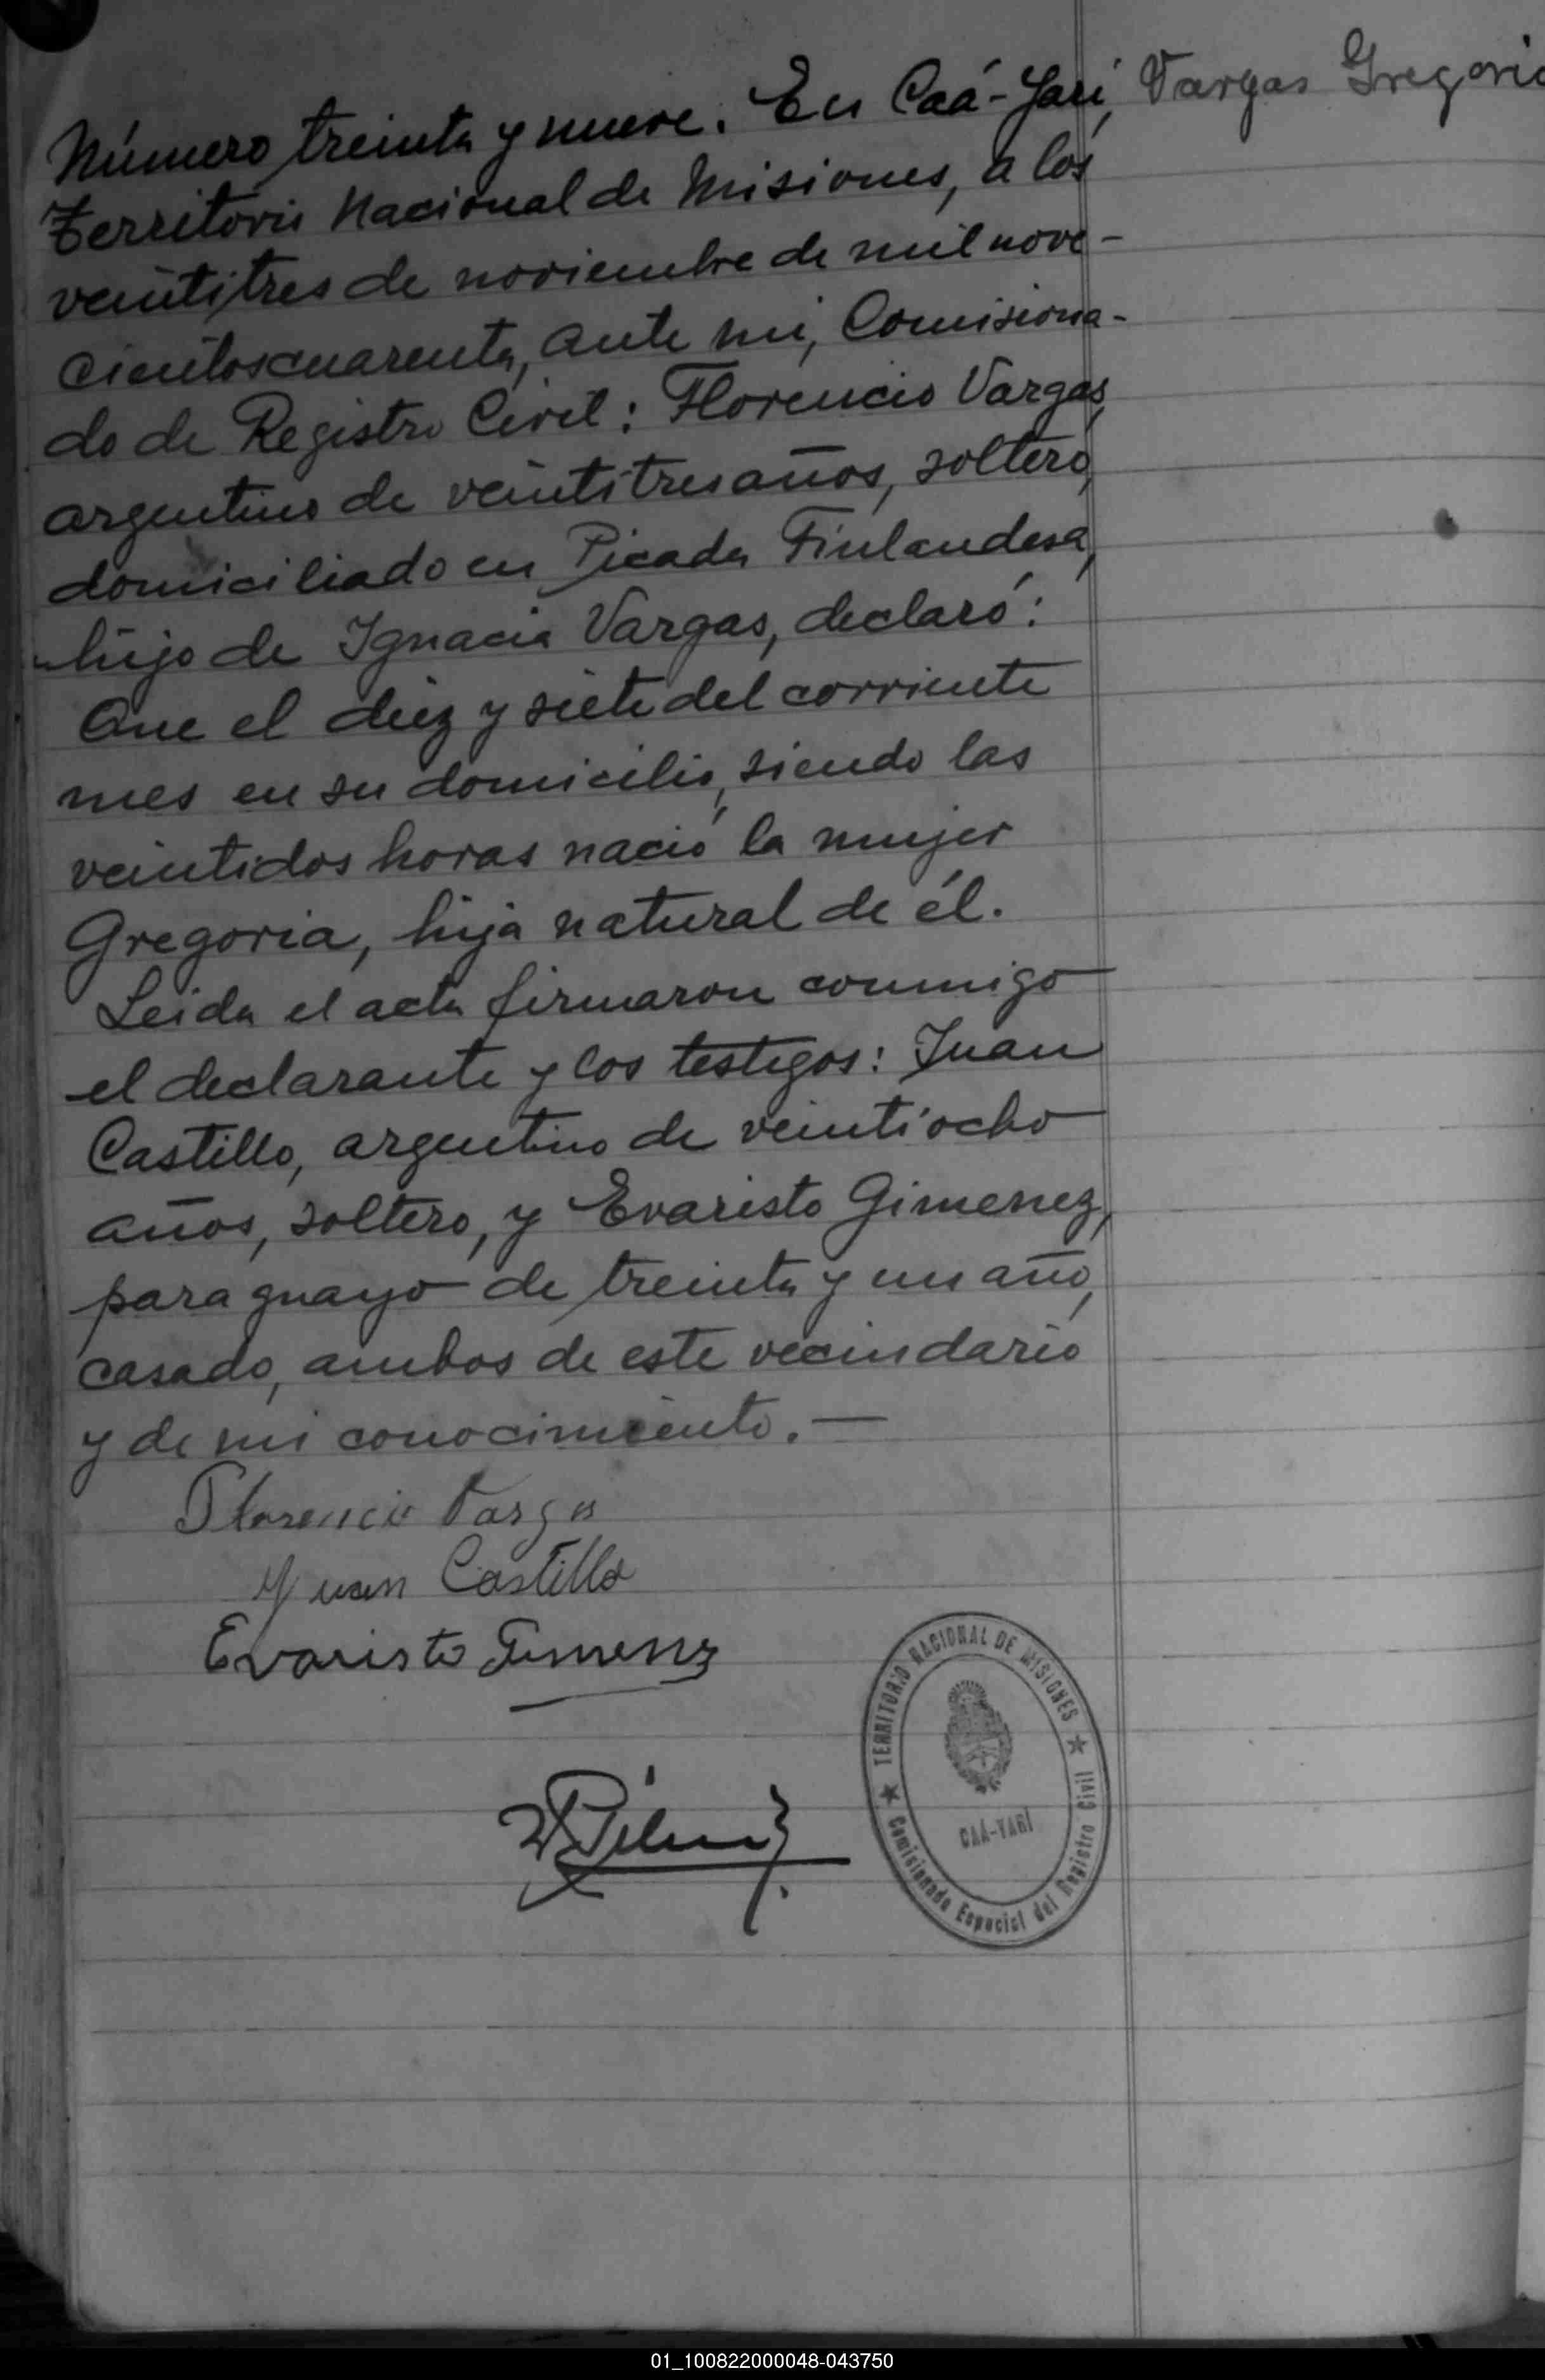 Número treinta y nueve. En Caá-Yarí, Vargas Gregoria
Territorio Nacional de Misiones, a los
veintitres de noviembre de mil nove-
cientoscuarenta, ante mi, Comisiona-
do de Registro Civil: Florencio Vargas,
argentino de veintitres años, soltero,
domiciliado en Picada Finlandesa,
hijo de Ignacia Vargas, declaró:
Que el diez y siete del corriente
mes en su domicilio, siendo las
veintidos horas nació la mujer
Gregoria, hija natural de él.
Leida el acta firmaron conmigo
el declarante y los testigos: Juan
Castillo, argentino de veintiocho
años, soltero, y Evaristo Gimenez,
paraguayo de treinta y un año,
casado, ambos de este vecindario
y de mi conocimiento. —
Florencio Vargas
Juan Castillo
Evaristo Jimenz
TERRITORIO NACIONAL DE MISIONES
CAÁ-YARÍ
Comisionado Especial del Registro Civil
01_100822000048-043750